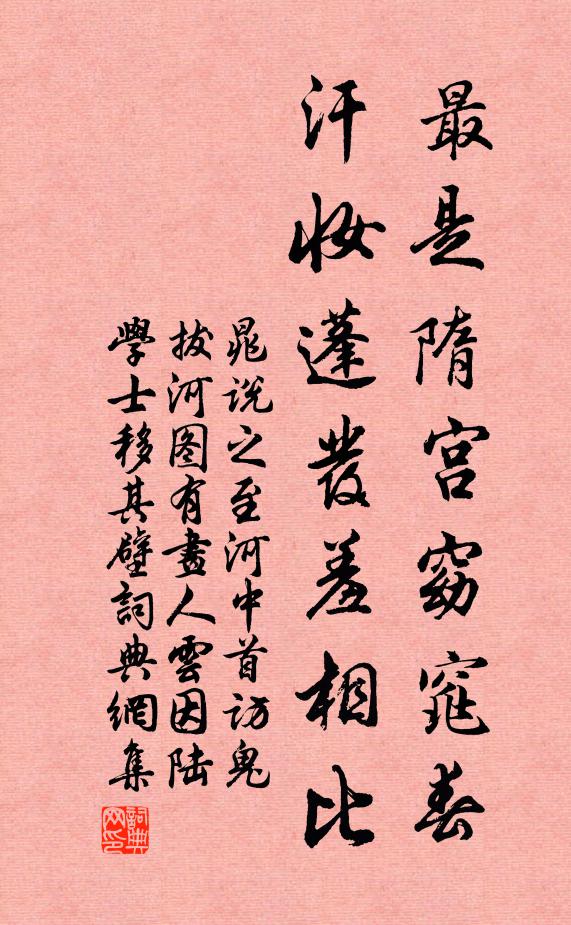 最是隋宫窈窕春
汗妆蓬发羞相比
晁说之至河中首访鬼
拔河图有畫人雲因陆
學士移其壁詞典網集
詞典网印